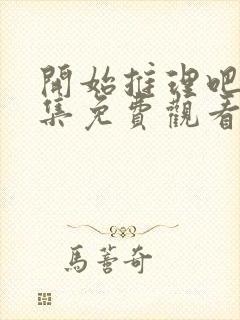 開始推理吧
集免費觀看
馬蕾奇